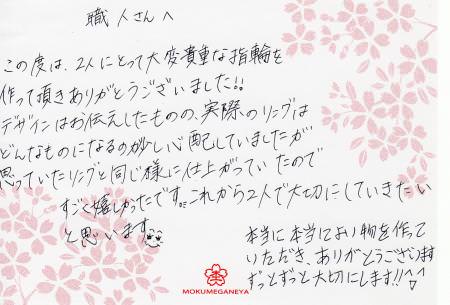 職人さんへ
この度は、2人にとって大変貴重な指輪を
作って頂きありがとうございました!!
デザインはお伝えしたものの、実際のリングは
どんなものになるのか少し心配していましたが
思っていたリングと同じ様に仕上がっていたので
すごく嬉しかったです。これから2人で大切にしていきたい
と思います
本当に本当によい物を作って
いただき、ありがとうございます
ずっとずっと大切にします!!
MOKUMEGANEYA